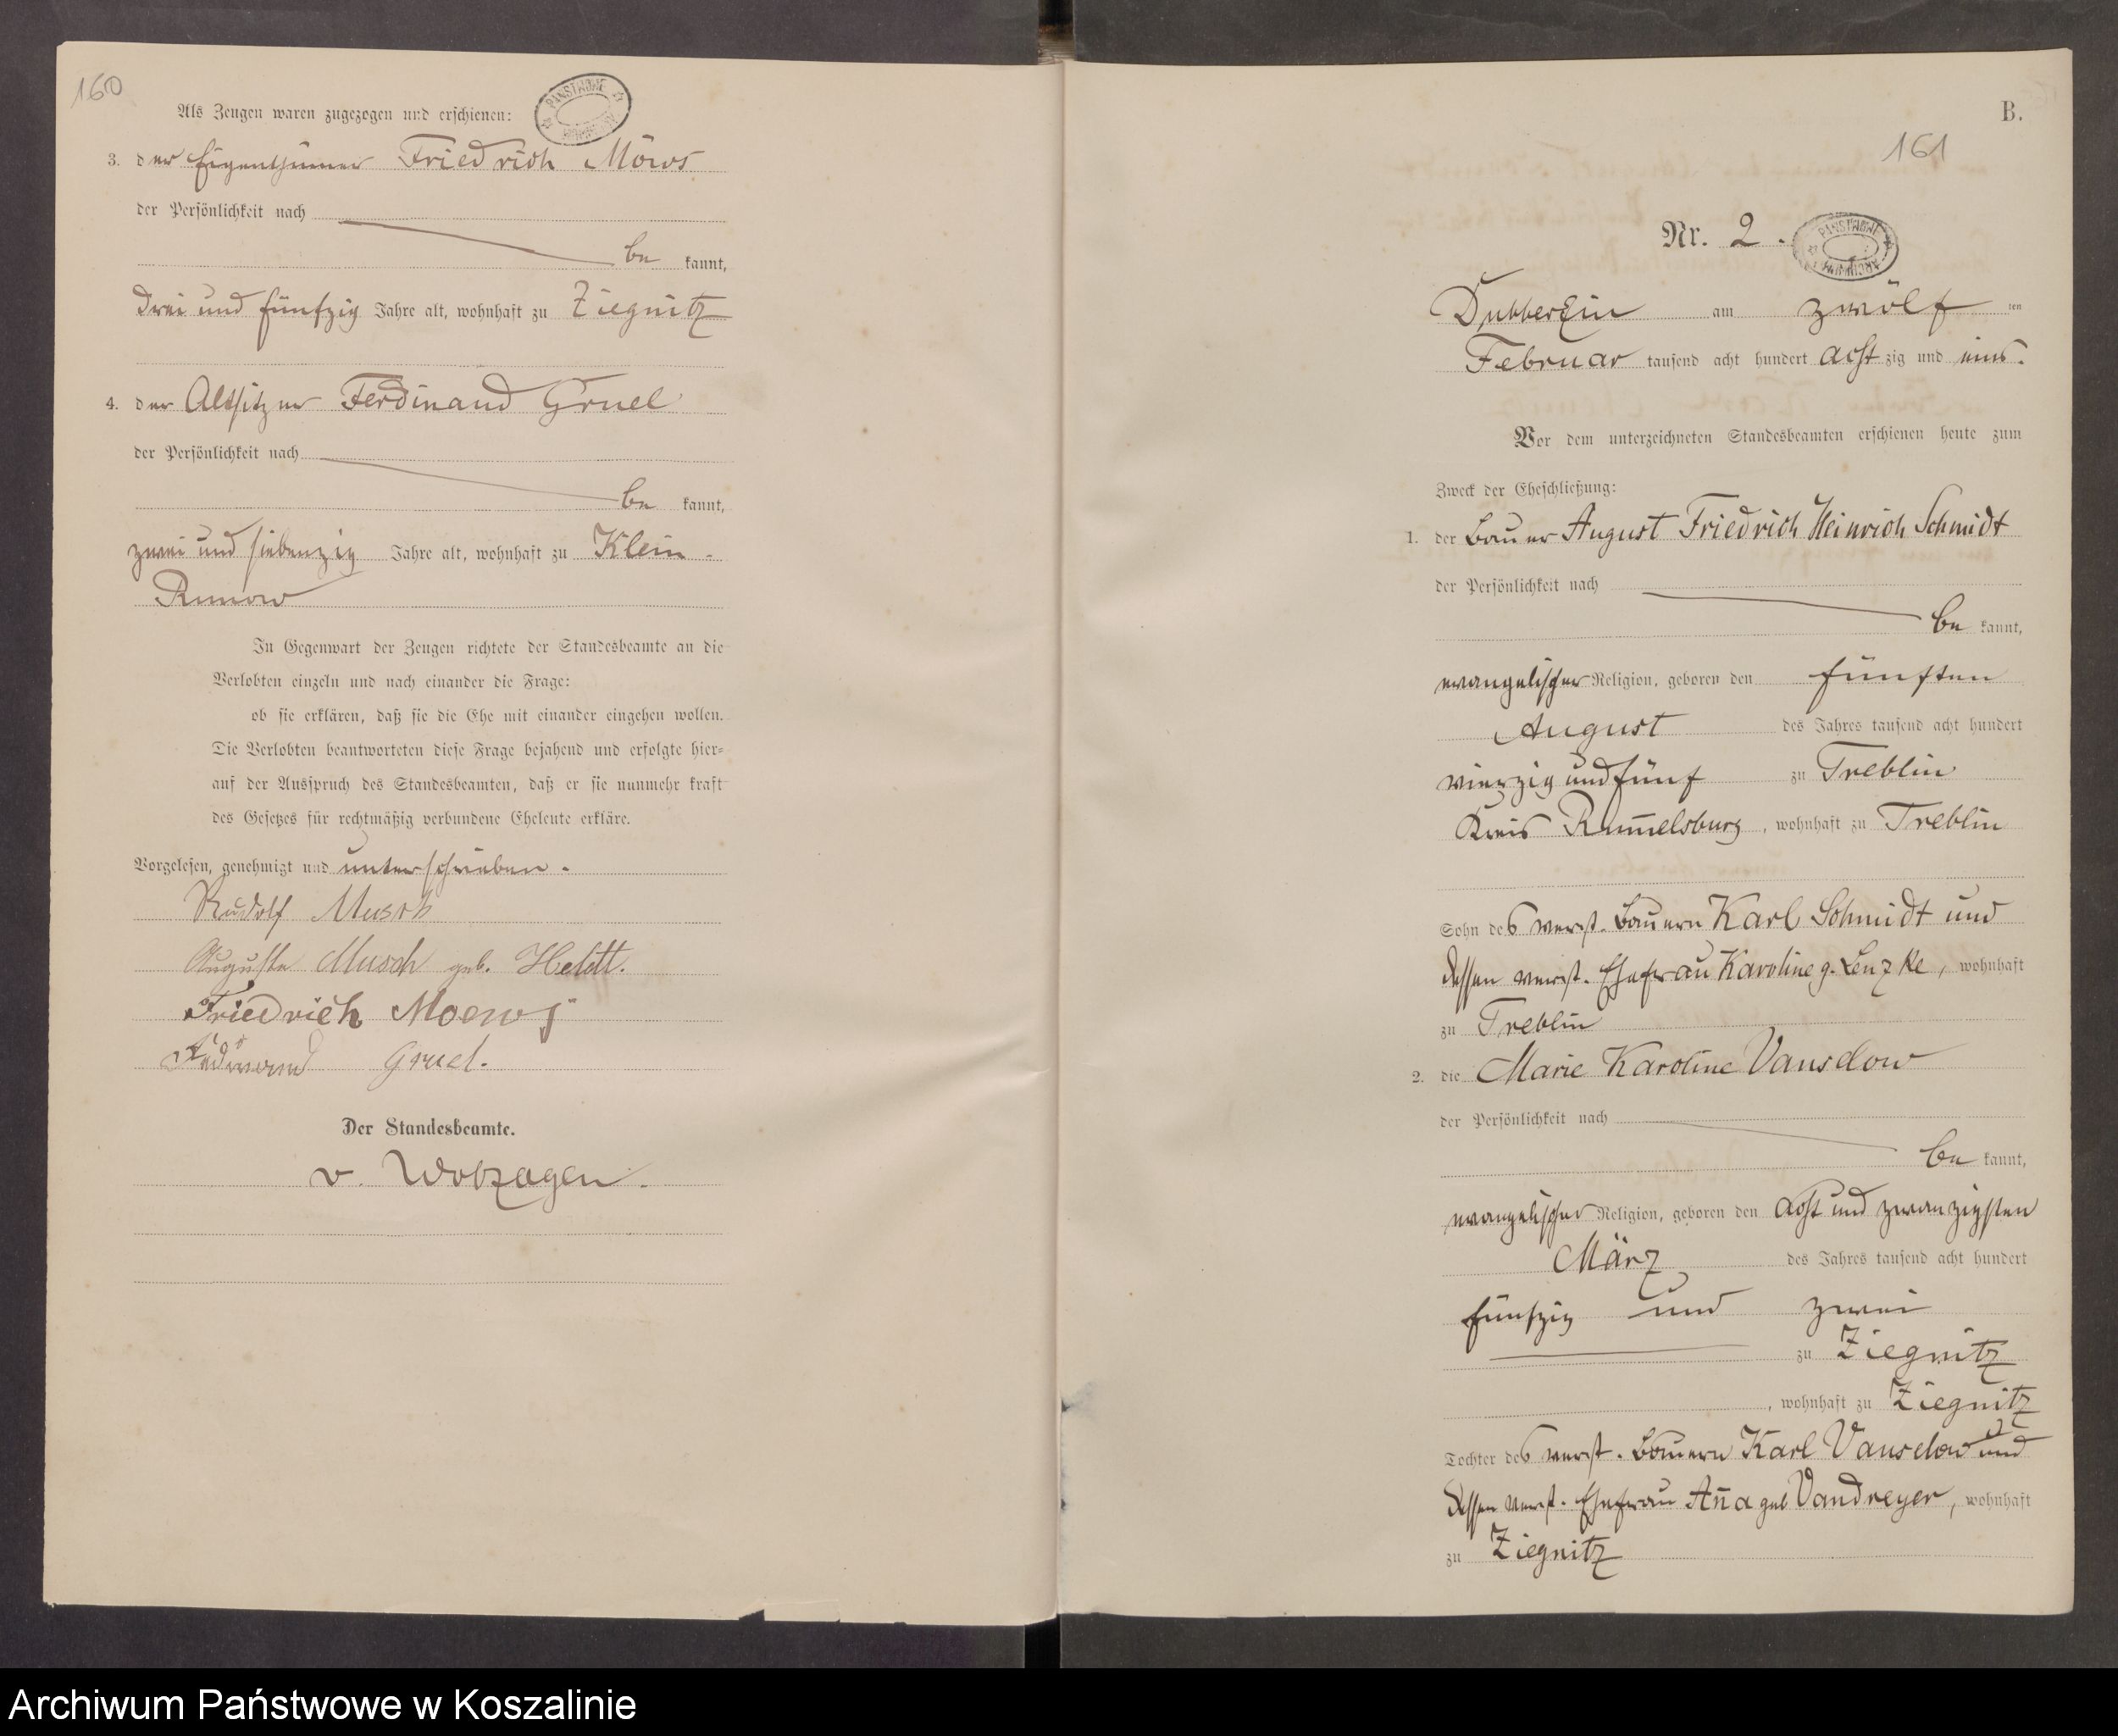 160
Als Zeugen waren zugezogen und erschienen:
3. der Eigenthümer Friedrich Möws
der Persönlichkeit nach
be kannt,
drei und fünfzig Jahre alt, wohnhaft zu Ziegnitz
4. der Altsitzer Ferdinand Gruel
der Persönlichkeit nach
be kannt,
zwei und siebenzig Jahre alt, wohnhaft zu Klein-
Runow
In Gegenwart der Zeugen richtete der Standesbeamte an die
Verlobten einzeln und nach einander die Frage:
ob sie erklären, daß sie die Ehe mit einander eingehen wollen.
Die Verlobten beantworteten diese Frage bejahend und erfolgte hier-
auf der Ausspruch des Standesbeamten, daß er sie nunmehr kraft
des Gesetzes für rechtmäßig verbundene Eheleute erkläre.
Vorgelesen, genehmigt und unterschrieben.
Rudolf Musch
Auguste Musch geb. Heldt.
Friedrich Moews
Ferdinand Gruel.
Der Standesbeamte.
v.
B.
161
Nr. 2.
Dubberzin am zwölf ten
Februar tausend acht hundert acht zig und eins.
Vor dem unterzeichneten Standesbeamten erschienen heute zum
Zweck der Eheschließung:
1. der Bauer August Friedrich Heinrich Schmidt
der Persönlichkeit nach
be kannt,
evangelischer Religion, geboren den fünften
August des Jahres tausend acht hundert
vierzig und fünf zu Treblin
Kreis Rum̄elsburg, wohnhaft zu Treblin
Sohn des verst. Bauern Karl Schmidt und
dessen verst. Ehefrau Karoline g. Lenzke, wohnhaft
zu Treblin
2. die Marie Karoline Vanselow
der Persönlichkeit nach
be kannt,
evangelischer Religion, geboren den acht und zwanzigsten
März des Jahres tausend acht hundert
fünfzig und zwei
zu Ziegnitz
, wohnhaft zu Ziegnitz
Tochter des verst. Bauern Karl Vanselow und
dessen verst. Ehefrau An̄a geb Vandreyer, wohnhaft
zu Ziegnitz
Archiwum Państwowe w Koszalinie